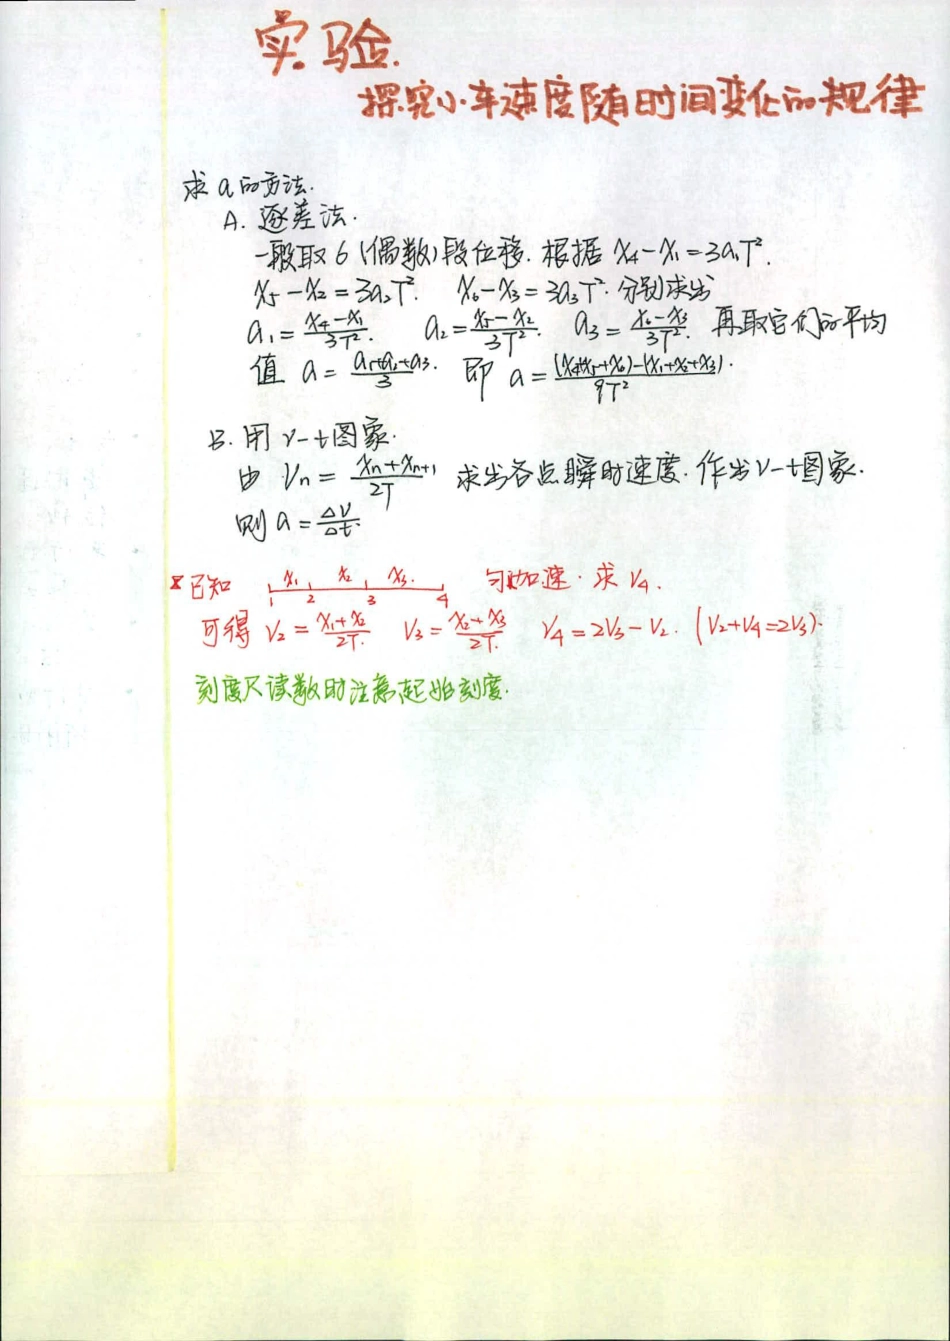 实验.
探究小车速度随时间变化的规律
求a的方法.
A. 逐差法.
一般取6(偶数)段位移.根据 x₄-x₁=3a₁T².
x₅-x₂=3a₂T². x₆-x₃=3a₃T².分别求出
a₁=(x₄-x₁)/3T². a₂=(x₅-x₂)/3T². a₃=(x₆-x₃)/3T². 再取它们的平均
值 a=(a₁+a₂+a₃)/3. 即 a=((x₄+x₅+x₆)-(x₁+x₂+x₃))/9T².
B. 用v-t图象.
由 Vn=(xn+xn+1)/2T 求出各点瞬时速度.作出v-t图象.
则a=ΔV/Δt.
※已知 x₁ x₂ x₃. 匀加速.求V₄.
1 2 3 4
可得 V₂=(x₁+x₂)/2T. V₃=(x₂+x₃)/2T. V₄=2V₃-V₂. (V₂+V₄=2V₃).
刻度尺读数时注意起始刻度.